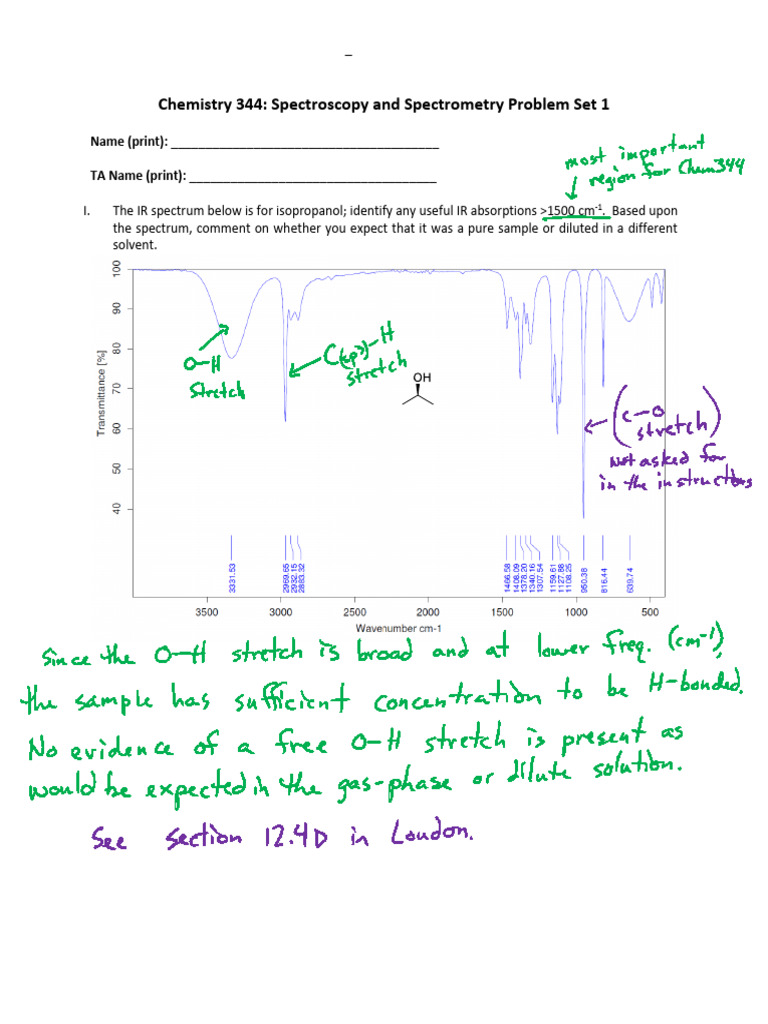 Chemistry 344: Spectroscopy and Spectrometry Problem Set 1
Name (print): ___________________________________
TA Name (print): _________________________________
most important
region for Chem344
I. The IR spectrum below is for isopropanol; identify any useful IR absorptions >1500 cm-1. Based upon
the spectrum, comment on whether you expect that it was a pure sample or diluted in a different
solvent.
Transmittance [%]
100
90
80
70
60
50
40
O—H
Stretch
C(sp³)—H
stretch
OH
(C—O
stretch)
Not asked for
in the instructions
3331.53
2969.65
2932.15
2883.32
1466.58
1408.09
1378.20
1340.16
1307.54
1159.61
1127.88
1108.25
950.38
816.44
639.74
3500 3000 2500 2000 1500 1000 500
Wavenumber cm-1
Since the O—H stretch is broad and at lower freq. (cm⁻¹),
the sample has sufficient concentration to be H-bonded.
No evidence of a free O—H stretch is present as
would be expected in the gas-phase or dilute solution.
See section 12.4D in Loudon.